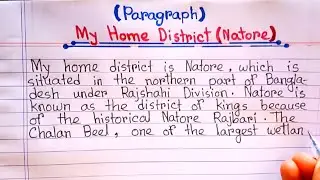 (Paragraph)
My Home District (Natore)
My home district is Natore, which is
situated in the northern part of Bangla-
desh under Rajshahi Division. Natore is
known as the district of kings because
of the historical Natore Rajbari. The
Chalan Beel, one of the largest wetlan